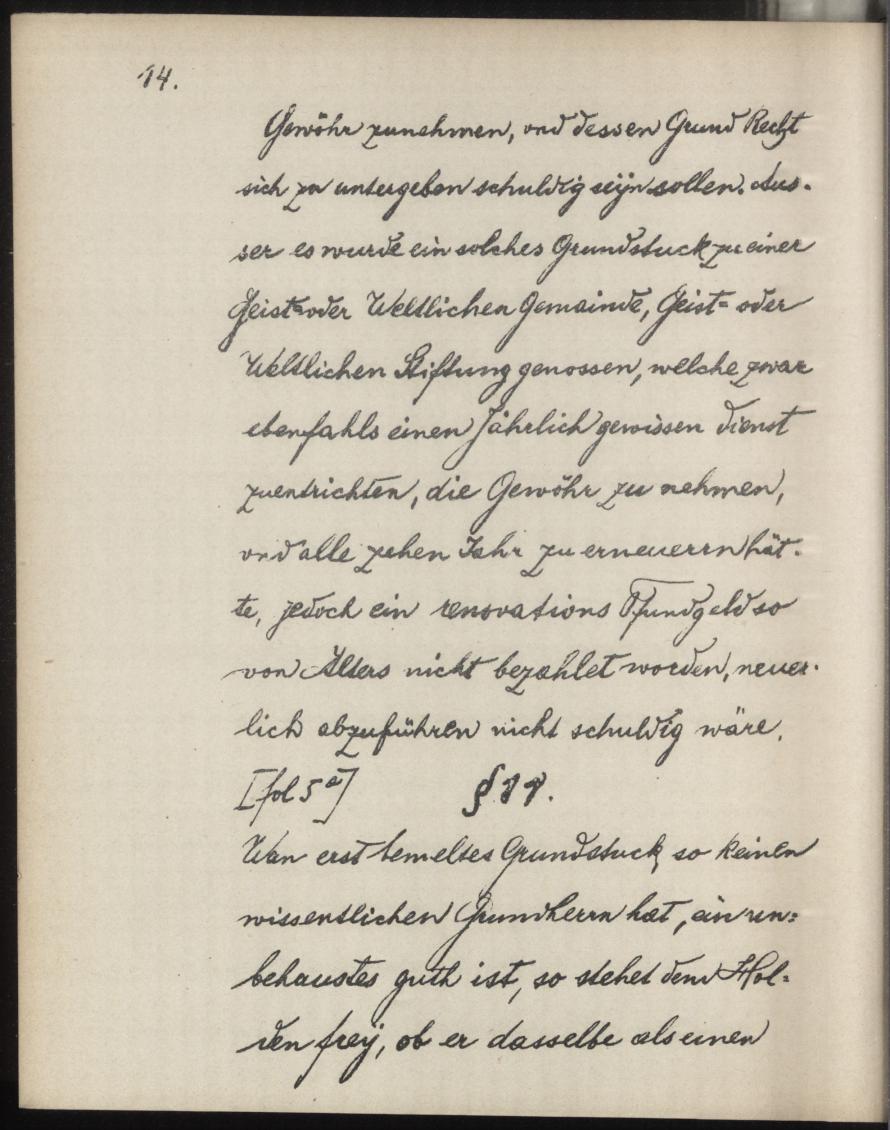 14.
Gewöhr zunehmen, vnd dessen Grund Recht
sich zu untergeben schuldig seÿn sollen. Aus-
ser es wurde ein solches Grundstuck zu einer
Geist= oder Weltlichen Gemainde, Geist= oder
Weltlichen Stiftung genossen, welche zwar
ebenfahls einen Jährlich gewissen dienst
zuentrichten, die Gewöhr zu nehmen,
vnd alle zehen Jahr zu erneuerrn hät-
te, jedoch ein renovations Pfundgeld so
von Alters nicht bezahlet worden, neuer-
lich abzuführen nicht schuldig wäre.
[fol 5a] § 11.
Wan erst bemeltes Grundstuck, so keinen
wissentlichen Grundherrn hat, ein un=
behaustes guth ist, so stehet dem Hol=
den freÿ, ob er dasselbe als einen